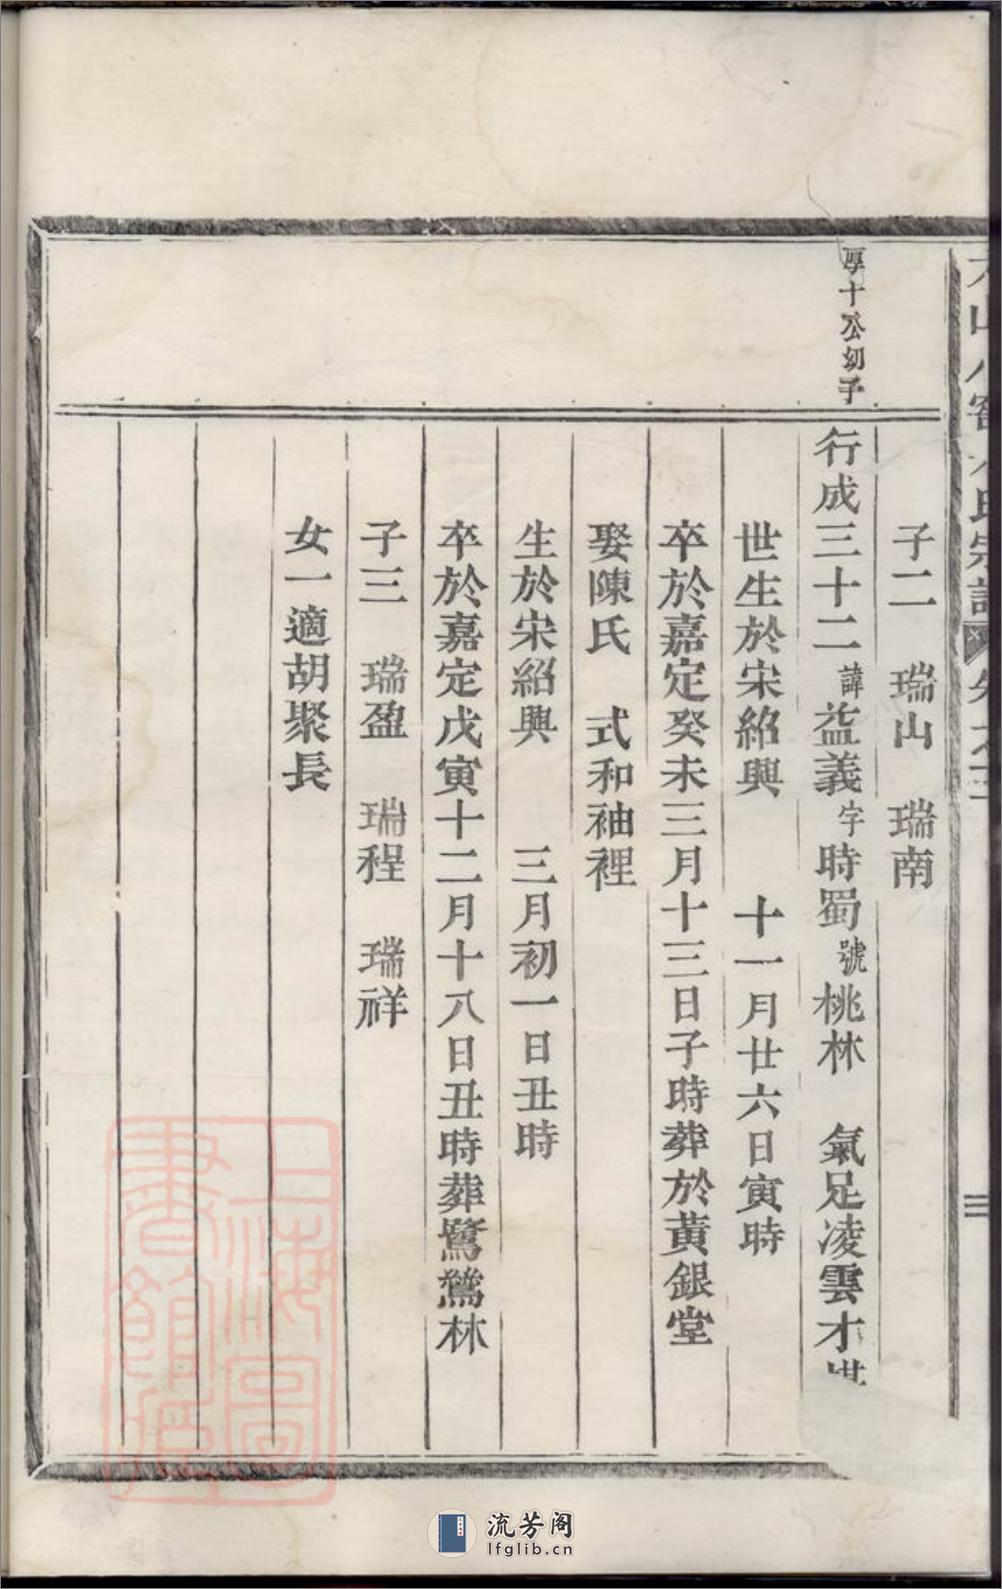 氏宗譜
三
子二 瑞山 瑞南
厚十公幼子
行成三十二諱益義字時蜀號桃林 氣足凌雲才
世生於宋紹興 十一月廿六日寅時
卒於嘉定癸未三月十三日子時葬於黃銀堂
娶陳氏 式和袖裡
生於宋紹興 三月初一日丑時
卒於嘉定戊寅十二月十八日丑時葬鷺鶿林
子三 瑞盈 瑞程 瑞祥
女一適胡聚長
上海圖書館藏
流芳阁
lfglib.cn